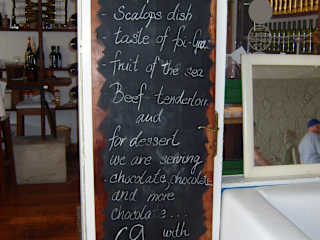 - Scalops dish
- taste of foi-gras
- fruit of the sea
- Beef tenderloin
and
for dessert
we are serving
- chocolate, chocolate
and more
chocola...
with